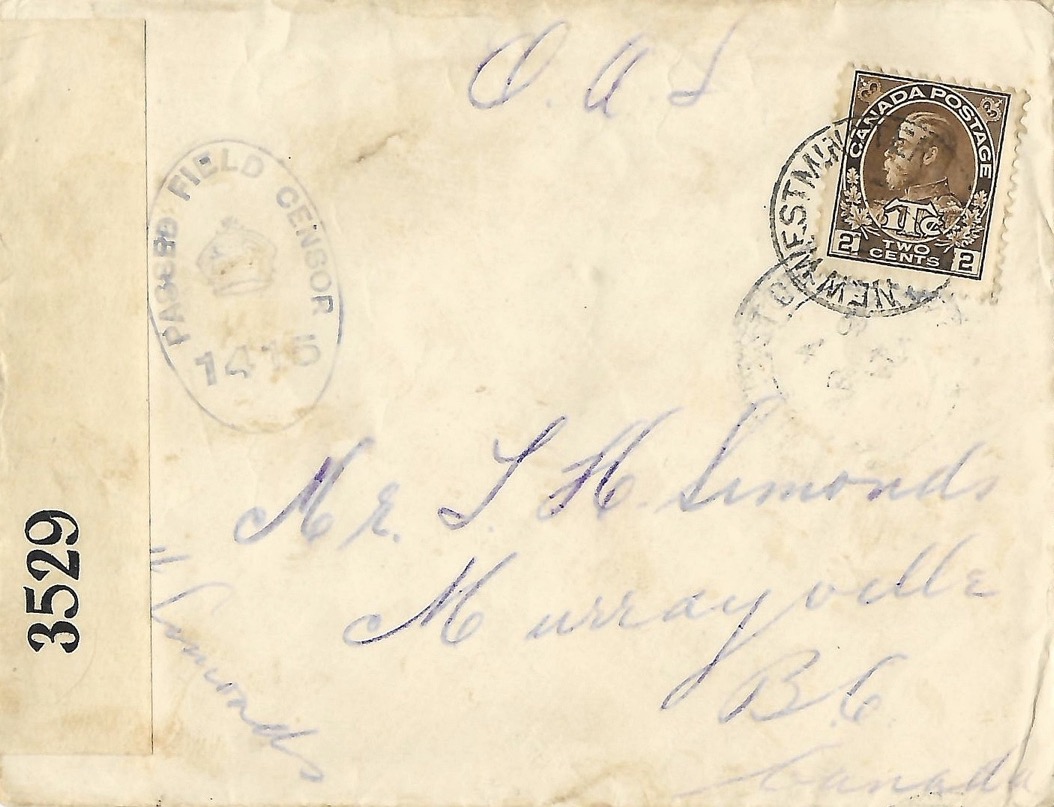 O. A. S
CANADA POSTAGE
1Tc
2 TWO CENTS 2
NEW WESTMIN
PASSED FIELD CENSOR
1415
3529
Mr. S. H. Simonds
Murrayville
B.C
Canada
Simonds